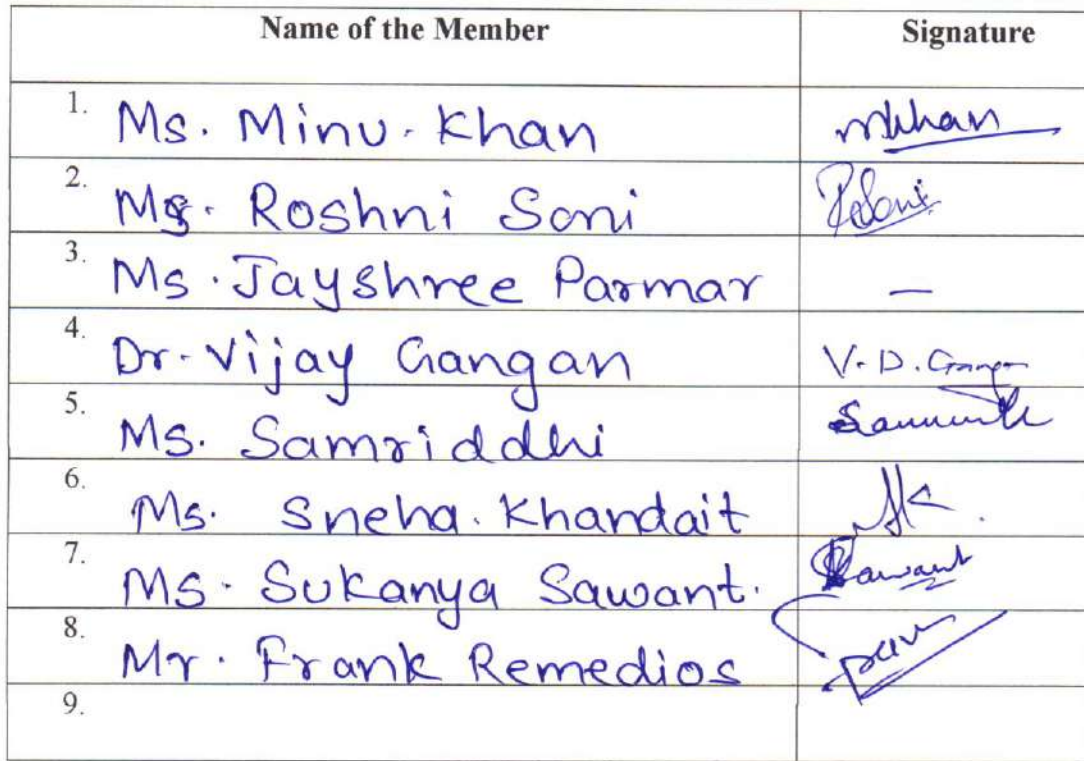 Name of the Member Signature
1. Ms. Minu. Khan mkhan
2. Ms. Roshni Soni RSoni
3. Ms. Jayshree Parmar —
4. Dr. Vijay Gangan V. D. Gangan
5. Ms. Samriddhi
6. Ms. Sneha. Khandait
7. Ms. Sukanya Sawant. Sawant
8. Mr. Frank Remedios
9.